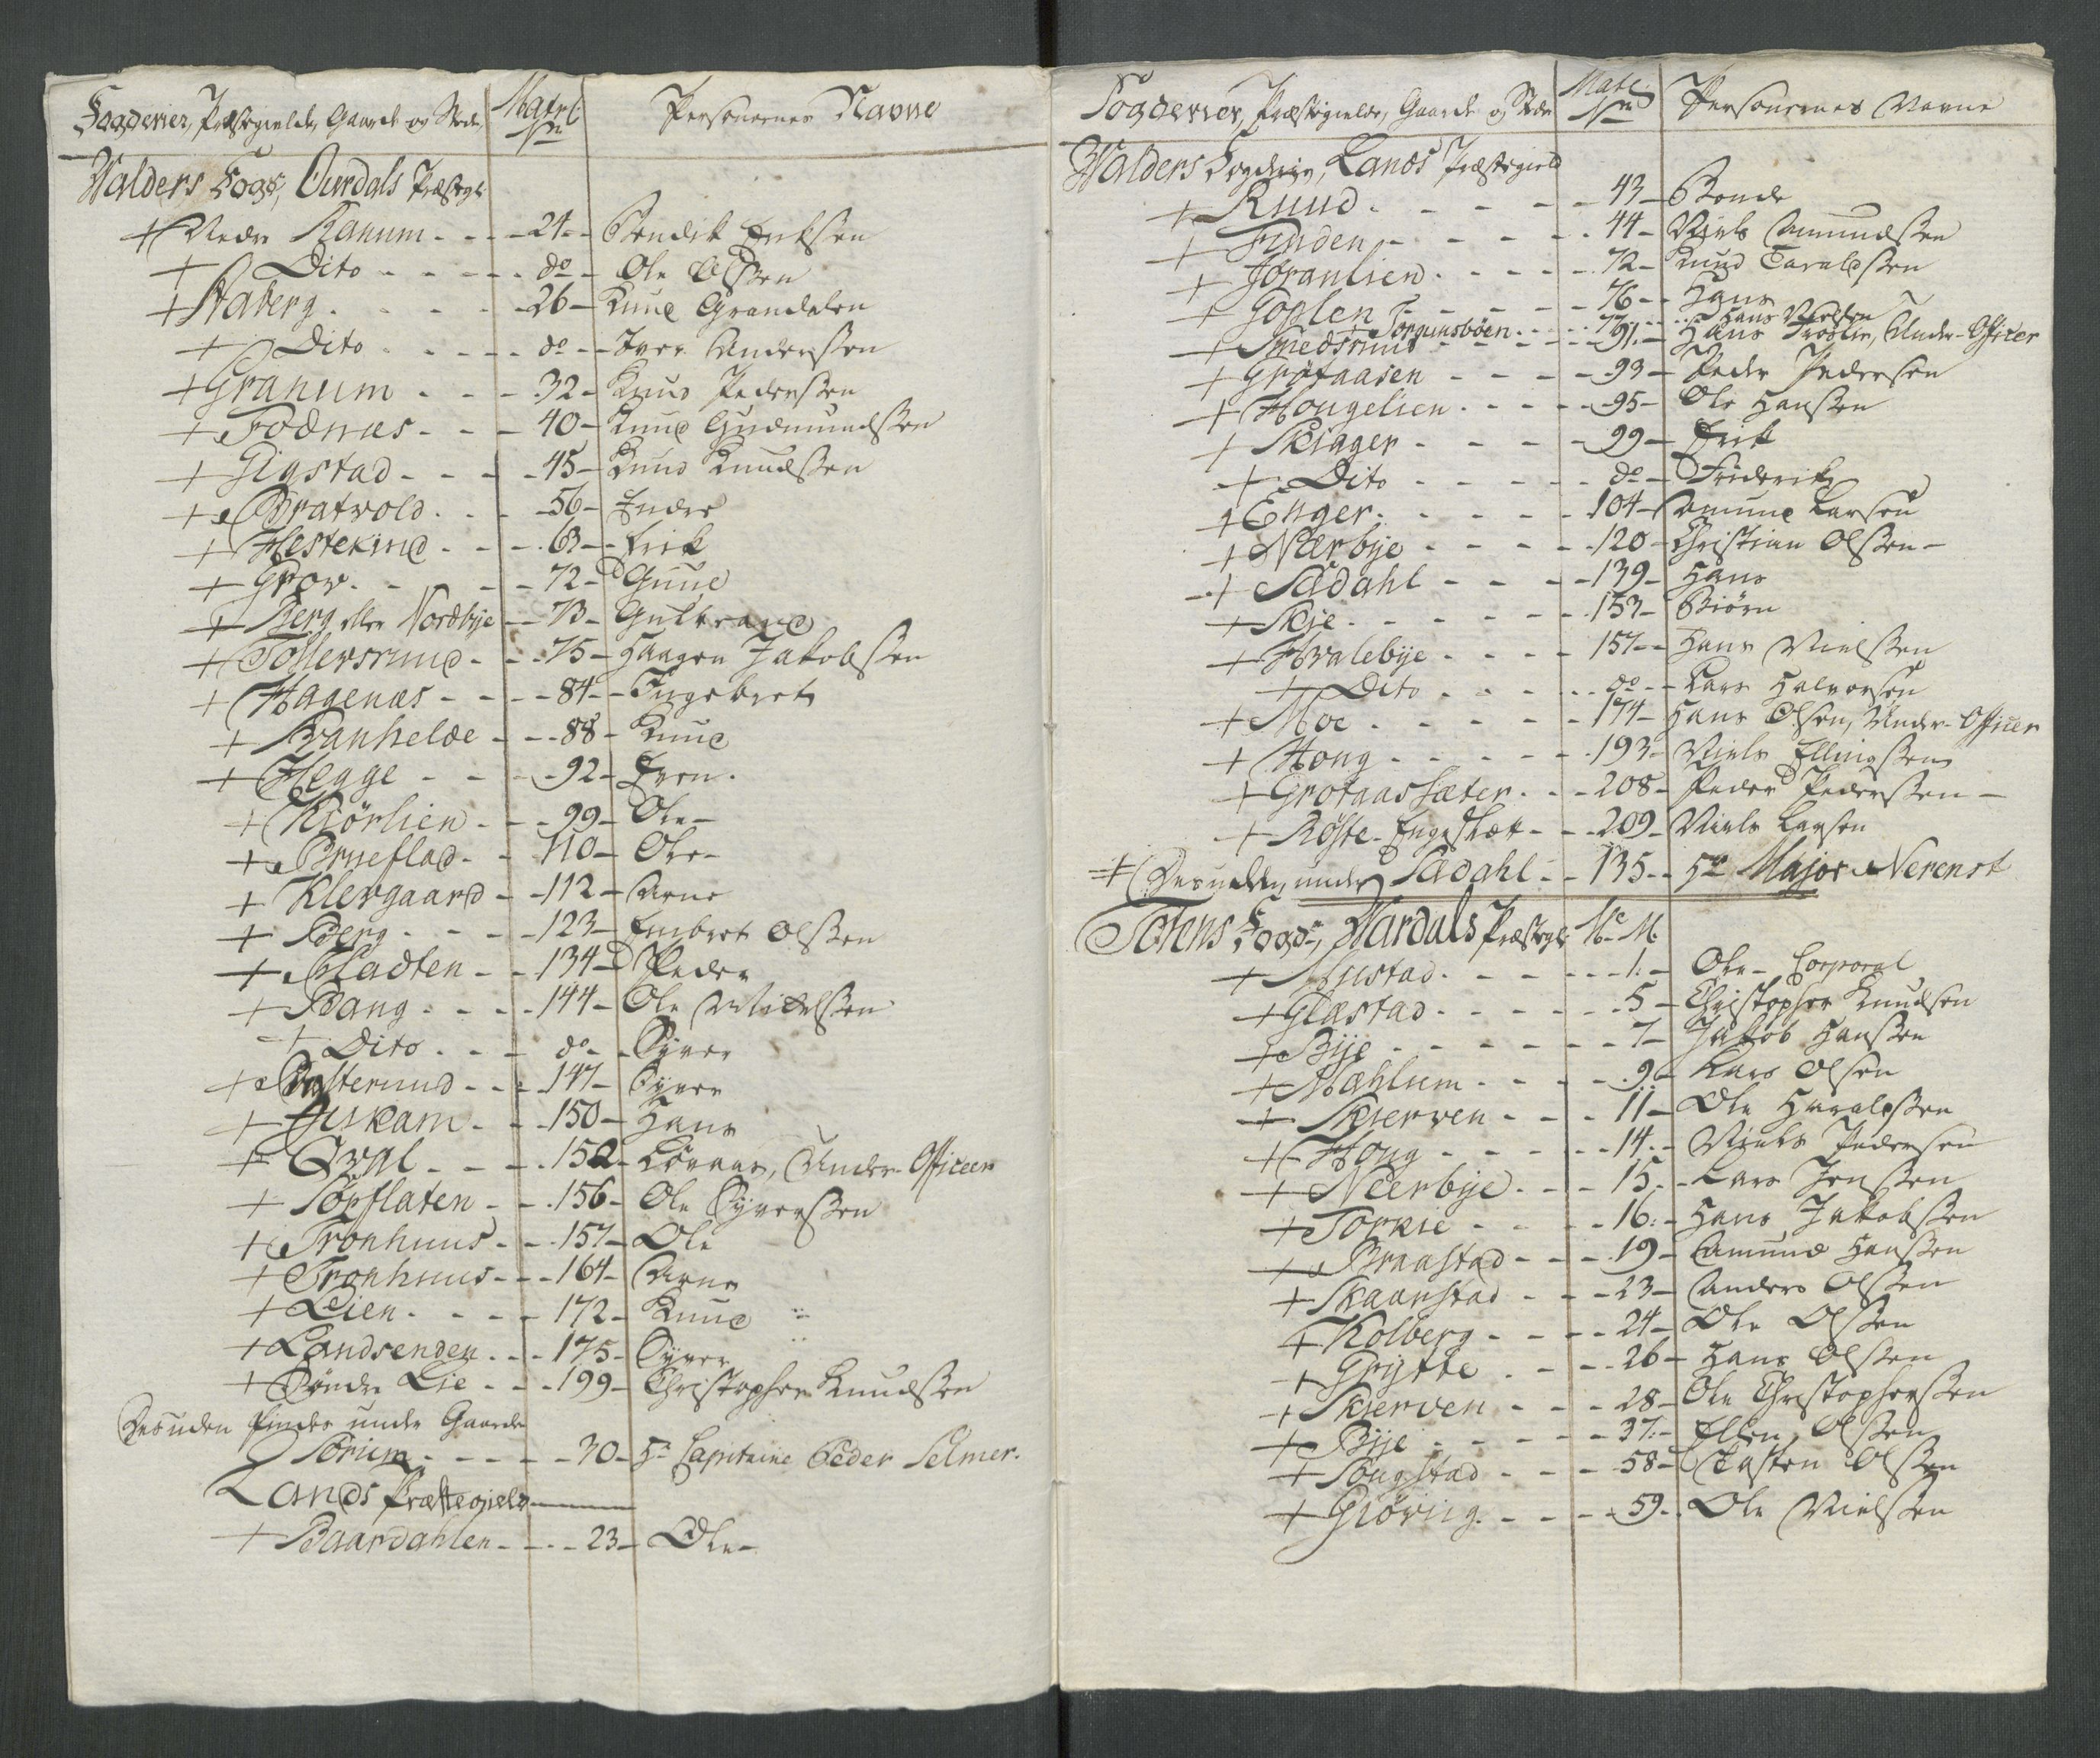 Fogderier, Præstegielde, Gaarde og Stede, Matrl: No Personernes Navne
Walders Fogd:, Ourdals Præstegl:
+ Nedre Ranum - - - 24 - Bendik Eriksen
+ Dito - - - - - do - Ole Olssen
+ Aaberg - - - - 26 - Knud Grandelen
+ Dito - - - - - do - Iver Anderssen
+ Granum - - - 32 - Knud Pederssen
+ Fodnæs - - - 40 - Knud Gudmundssen
+ Gigstad - - - - 45 - Knud Knudssen
+ Bratvold - - - 56 - Endre
+ Hestekind - - - 63 - Erik
+ Grov - - - - - 72 - Guul
+ Berg eller Nordbye - 73 - Gulbrand
+ Tollersrund - - - 75 - Haagen Jakobssen
+ Hagenæs - - - - 84 - Ingebret
+ Banhelde - - - 88 - Knud
+ Hegge - - - - 92 - Even
+ Kiørlien - - - 99 - Ole -
+ Brueflad - - 110 - Ole -
+ Klevgaard - 112 - Arne
+ Berg - - - - 123 - Embret Olssen
+ Bladten - - 134 - Peder
+ Bang - - - - 144 - Ole
+ Dito - - - do - Syver
+ - - - 147 - Syver
+ Hiskam - - - 150 - Hans
+ Qval - - - - 152 - , Under-Officeer
+ Tørflaten - - 156 - Ole Syverssen
+ Tronhuus - - - 157 - Ole
+ Tronhuus - - - 164 - Arne
+ Lien - - - - - 172 - Knud
+ Landsenden - - - 175 - Syver
+ Søndre Lie - - - 199 - Christopher Knudssen
Desuden findes under Gaarde
Tørium - - - - - 30 - Hr Capitaine Peder Selmer.
Lands Præstegield
+ Baardahlen - - - 23 - Ole -
Fogderier, Præstegielde, Gaarde og Steder Matl No Personernes Navne
Walders Fogderie, Lands Præstegield
+ Ruud - - - - - - 43 - Bonde
+ Finden - - - - - 44 - Niels Amundssen
+ Joranlien - - - - - 72 - Knud Taraldssen
+ Goplen - - - - - 76 - Hans
Torgunsbøen - - - 77 - Hans Nielsen
+ Smedsrud - - - - 91 - Hans , Under-Officer
+ Grøtaasen - - - - 93 - Peder Pedersen
+ Hougelien - - - - - 95 - Ole Hanssen
+ Skiager - - - - - 99 - Erik
+ Dito - - - - - do - Friderik
+ Enger - - - - - 104 - Amund Larsen
+ Nærbye - - - - - 120 - Christian Olssen -
+ Sædahl - - - - 139 - Hans
+ Skie - - - - - - 153 - Biørn
+ Hvalebye - - - - 157 - Hans Nielssen
+ Dito - - - - do - Lars Halvorsen
+ Moe - - - - - 174 - Hans Olsen, Under-Officer
+ Houg - - - - - 193 - Niels Ellingssen
+ Grøtaassæter - - - 208 - Peder Pederssen -
+ Røste-Engeslæt - - - 209 - Niels Larsen
+ Desuden under Sædahl - - 135 - Hr Major Nerenst
Totens Fogd:, Wardals Præstegl: Ne M.
+ Mustad - - - - - - 1 - Ole - Corporal
+ Glæstad - - - - - - 5 - Christopher Knudsen
+ Bye - - - - - - - 7 - Jakob Hanssen
+ Mæhlum - - - - - 9 - Lars Olsen
+ Skierven - - - - 11 - Ole Haraldssen
+ Houg - - - - - 14 - Niels Pedersen
+ Nærbye - - - - 15 - Lars Jenssen
+ Torkie - - - - - 16 - Hans Jakobssen
+ Braastad - - - - 19 - Amund Hanssen
+ Skaanstad - - - - 23 - Anders Olssen
+ Kolberg - - - - 24 - Ole Olssen
+ Grytte - - - - 26 - Hans Olssen
+ Skierven - - - - 28 - Ole Christopherssen
+ Bye - - - - - - 37 - Ellen Olssen
+ Sougstad - - - - 58 - Casten Olssen
+ Giøvig - - - - - 59 - Ole Nielssen